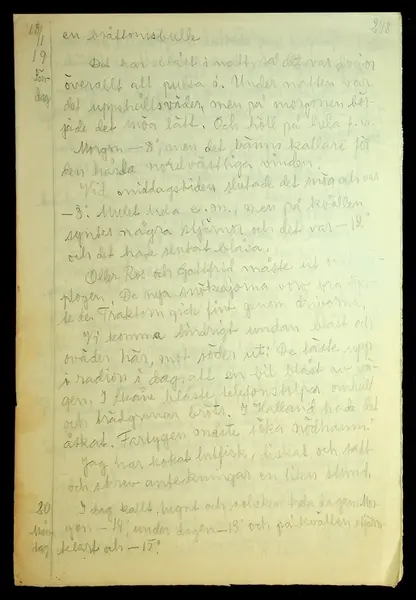 18/1
248
en kråttomsbulle
19
Sön-
dag
Det har blåst i natt, så det var drivor
överallt att pulsa i. Under natten var
det uppehållsväder, men på morgonen bör-
jade det snöa lätt. Och höll på hela f.m.
Morgon -8°, men det kännes kallare för
den hårda nordvästliga vinden.
Vid middagstiden slutade det snöa och var
-3°. Mulet hela e.m., men på kvällen
syntes några stjärnor och det var -12°
och det hade slutat blåsa.
Oller Ros och Gottfrid måste ut
plogen. De nya snökedjorna voro bra
Traktorn gick fint genom drivorna.
Vi komma lindrigt undan blåst och
oväder här, mot söder ut. De läste upp
i radion i dag, att en bil blåst av vä-
gen. I Skåne blåste telefonstolpar omkull
och trädgrenar bröts. I Halland hade det
åskat. Fartygen måste söka nödhamn.
Jag har kokat lutfisk, fiskat och satt
och skrev anteckningar en liten stund.
20
Mån-
dag
I dag kallt, lugnt och solsken hela dagen. Mor-
gon -18°, under dagen -13° och på kvällen stjärn-
klart och -15°.